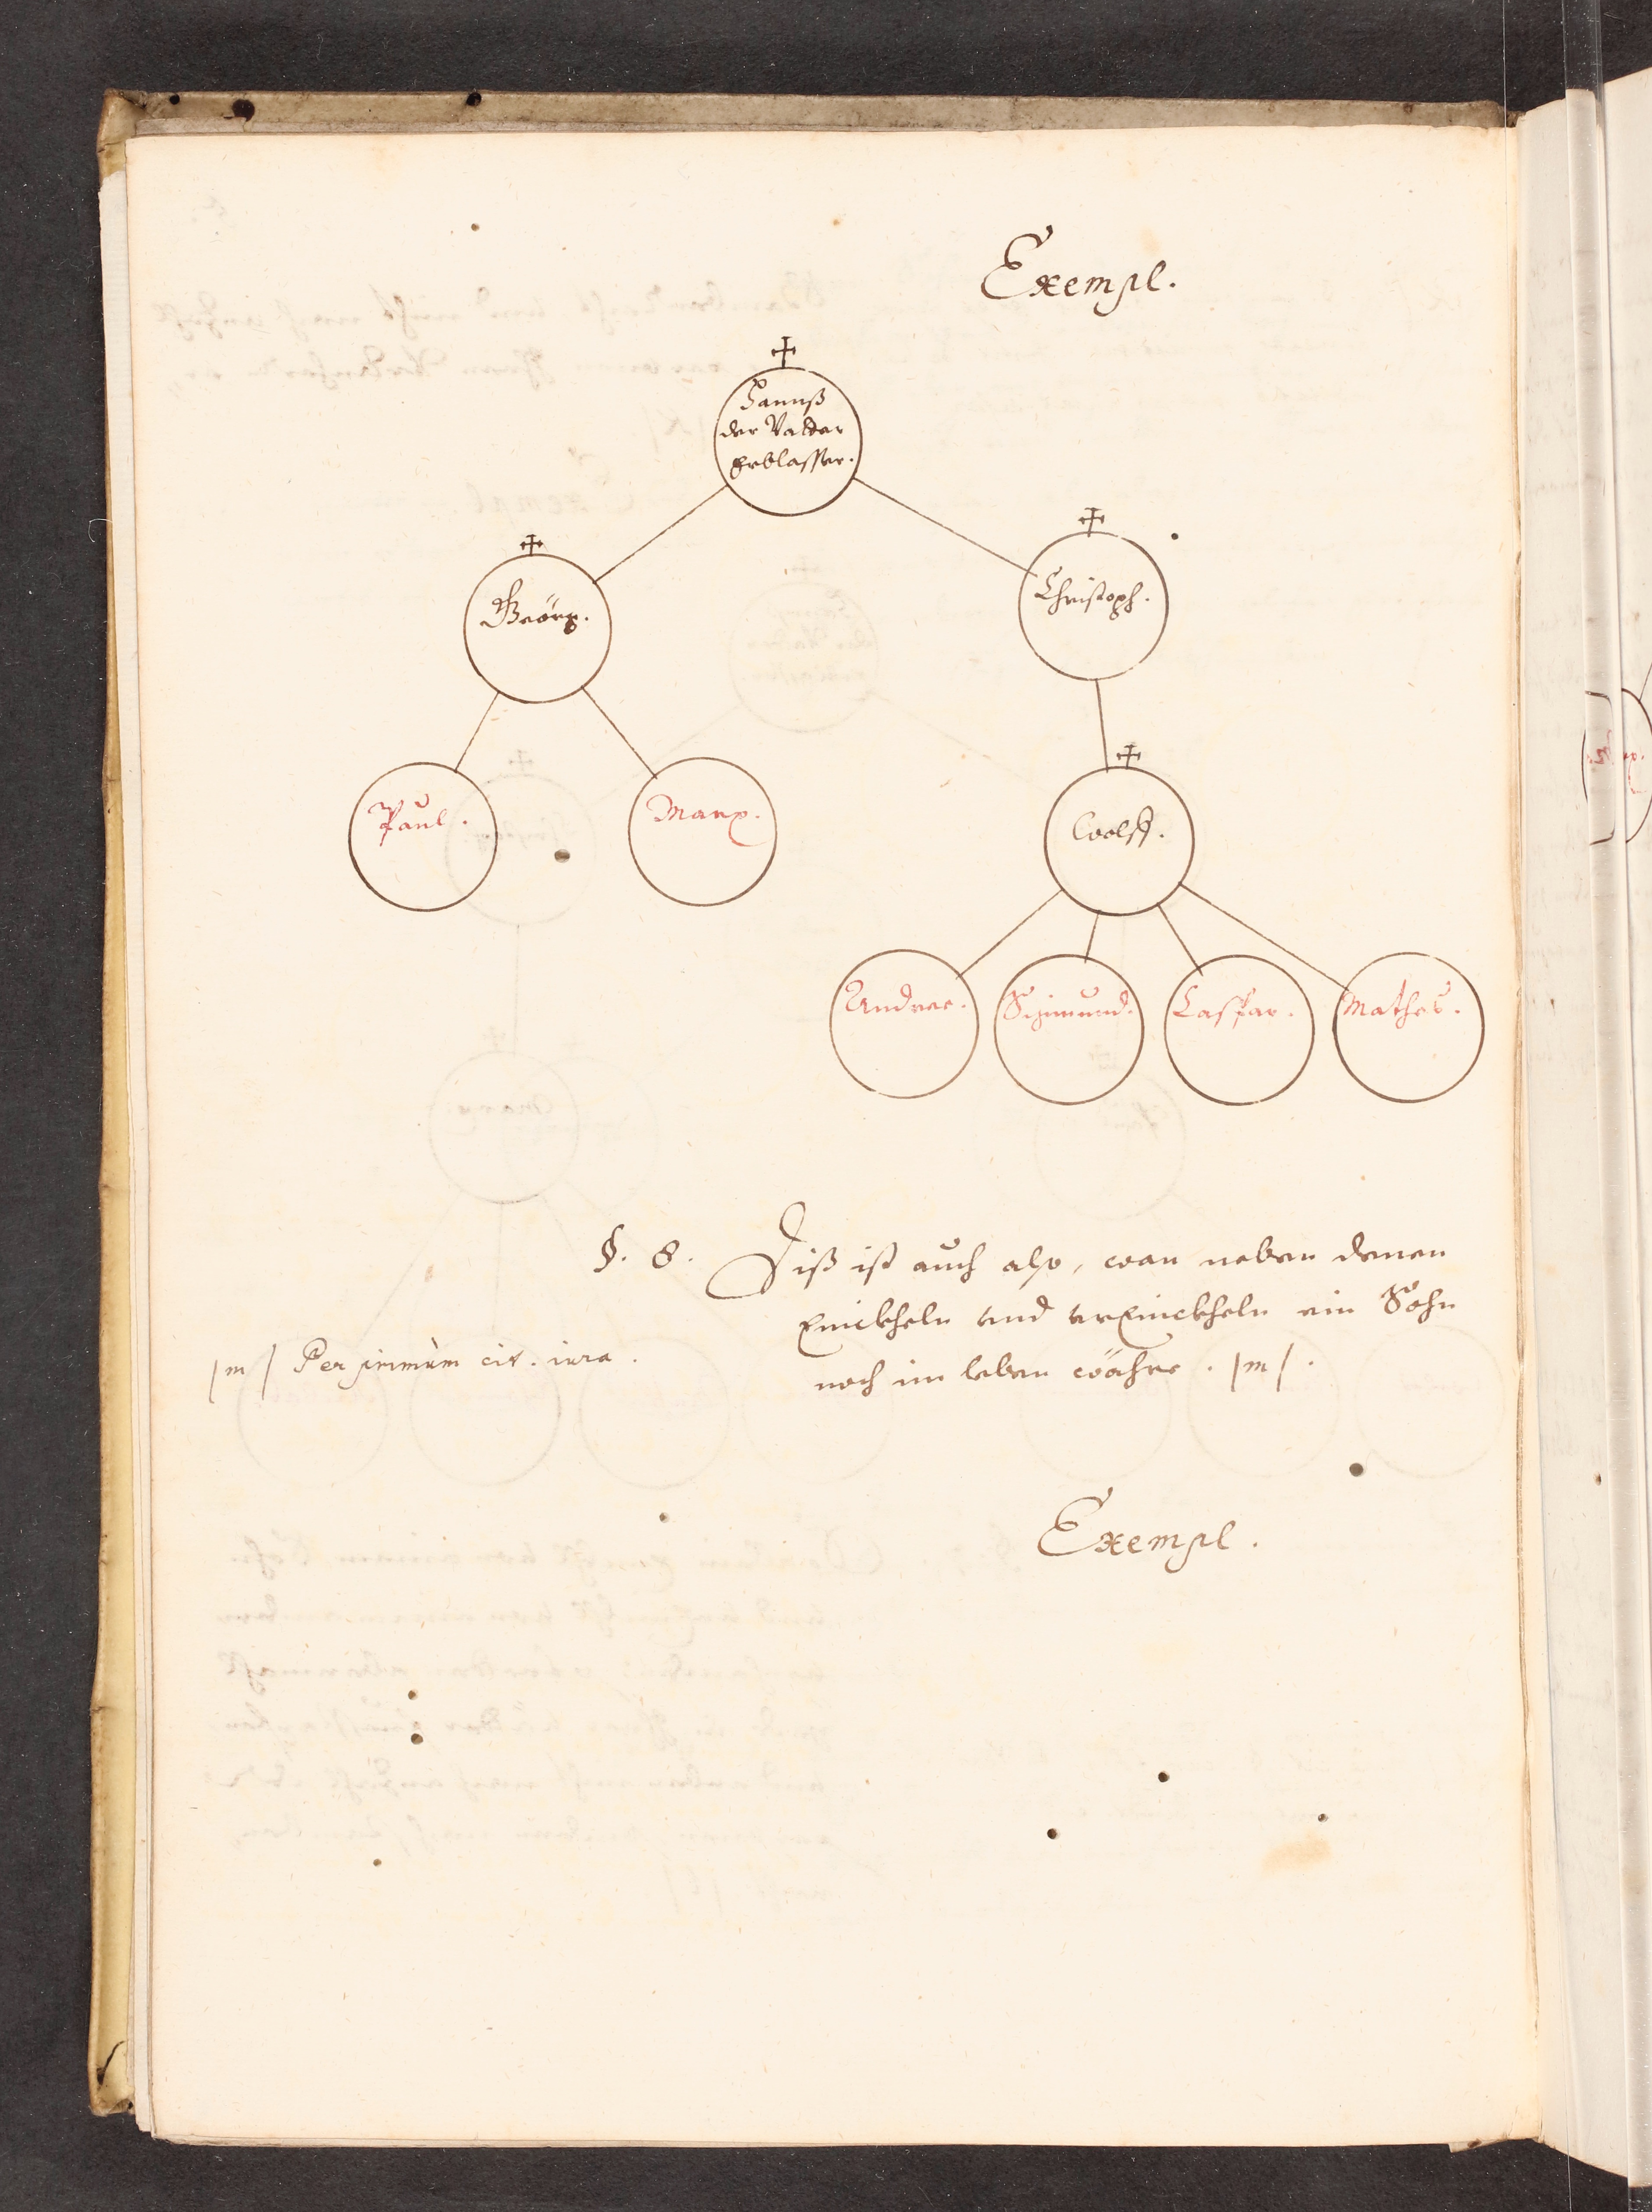 Exempl.
Hannß
der Vatter
Erblasser.
Geörg.
Christoph.
Paul.
Marx.
Wolff.
Andree.
Sigmund.
Casspar.
Mathes.
§. 8. Diß ist auch also, wan neben denen
Enickheln vnd vrEnickheln ein Sohn
noch im leben währe. /m/.
/m/ Per primùm cit. iura.
Exempl.